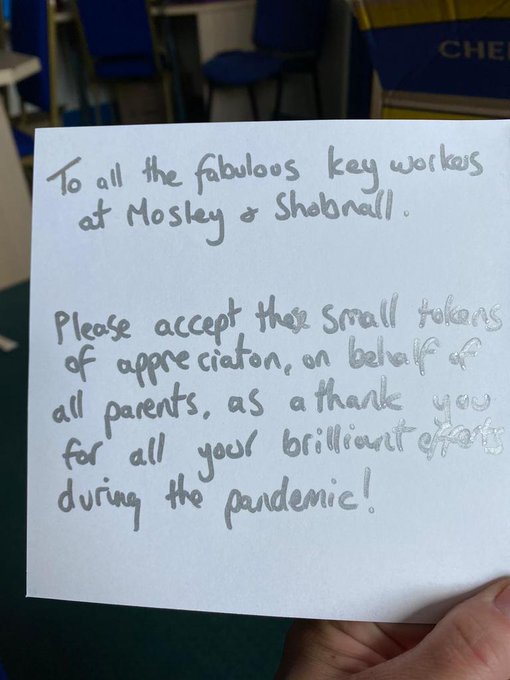 CHE
To all the fabulous key workers
at Mosley & Shobnall.
Please accept these small tokens
of appreciaton, on behalf of
all parents, as a thank you
for all your brilliant efforts
during the pandemic!